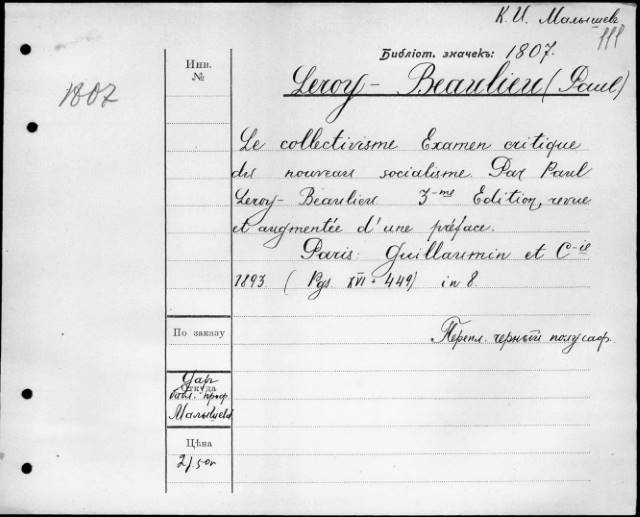 К. И. Малышев
Библіот. значекъ: 1807.
1807
Инв.
№
Leroy-Beaulieu (Paul)
Le collectivisme Examen critique
du nouveau socialisme. Par Paul
Leroy-Beaulieu 3-me Edition, revue
et augmentée d'une préface.
Paris: Guillaumin et C-ie
1893 (Pgs. XVI + 449) in 8.
По заказу
Перепл. черный полусаф.
Откуда
Дар
библ. проф.
Малышева
Цѣна